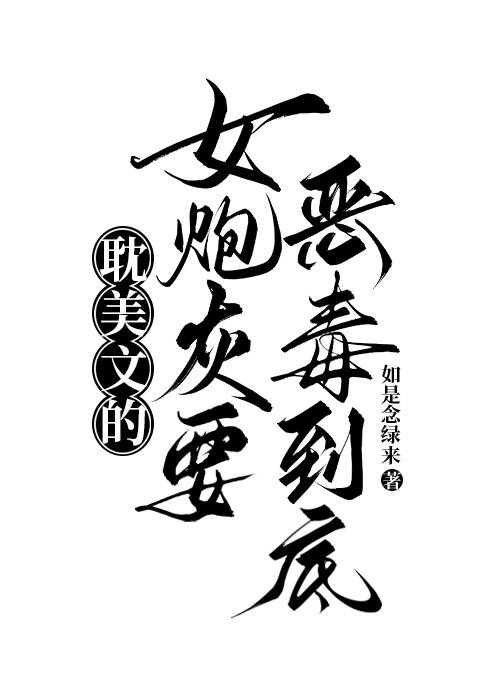 耽美文的
女炮灰要
恶毒到底
如是念绿来著